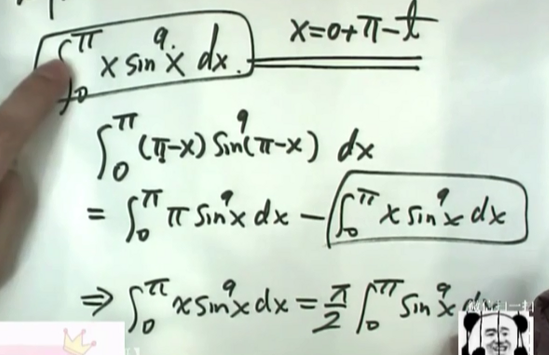 ∫₀^π x sin⁹x dx. x=0+π-t
∫₀^π (π-x) sin⁹(π-x) dx
= ∫₀^π π sin⁹x dx - ∫₀^π x sin⁹x dx
⇒ ∫₀^π x sin⁹x dx = π/2 ∫₀^π sin⁹x d